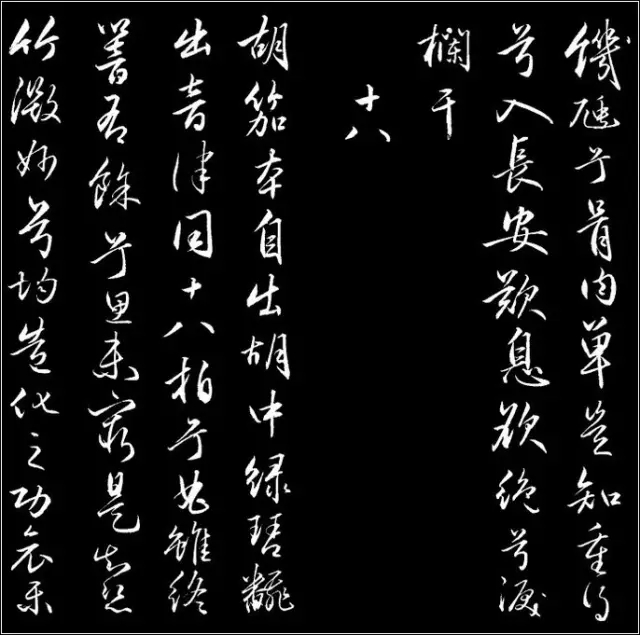 饑豗兮骨肉單豈知重得
兮入長安歎息欲絕兮淚
欄干
十八
胡笳本自出胡中緑琴翻
出音律同十八拍兮曲雖終
響有餘兮思未窮是知絲
竹微妙兮均造化之功哀樂